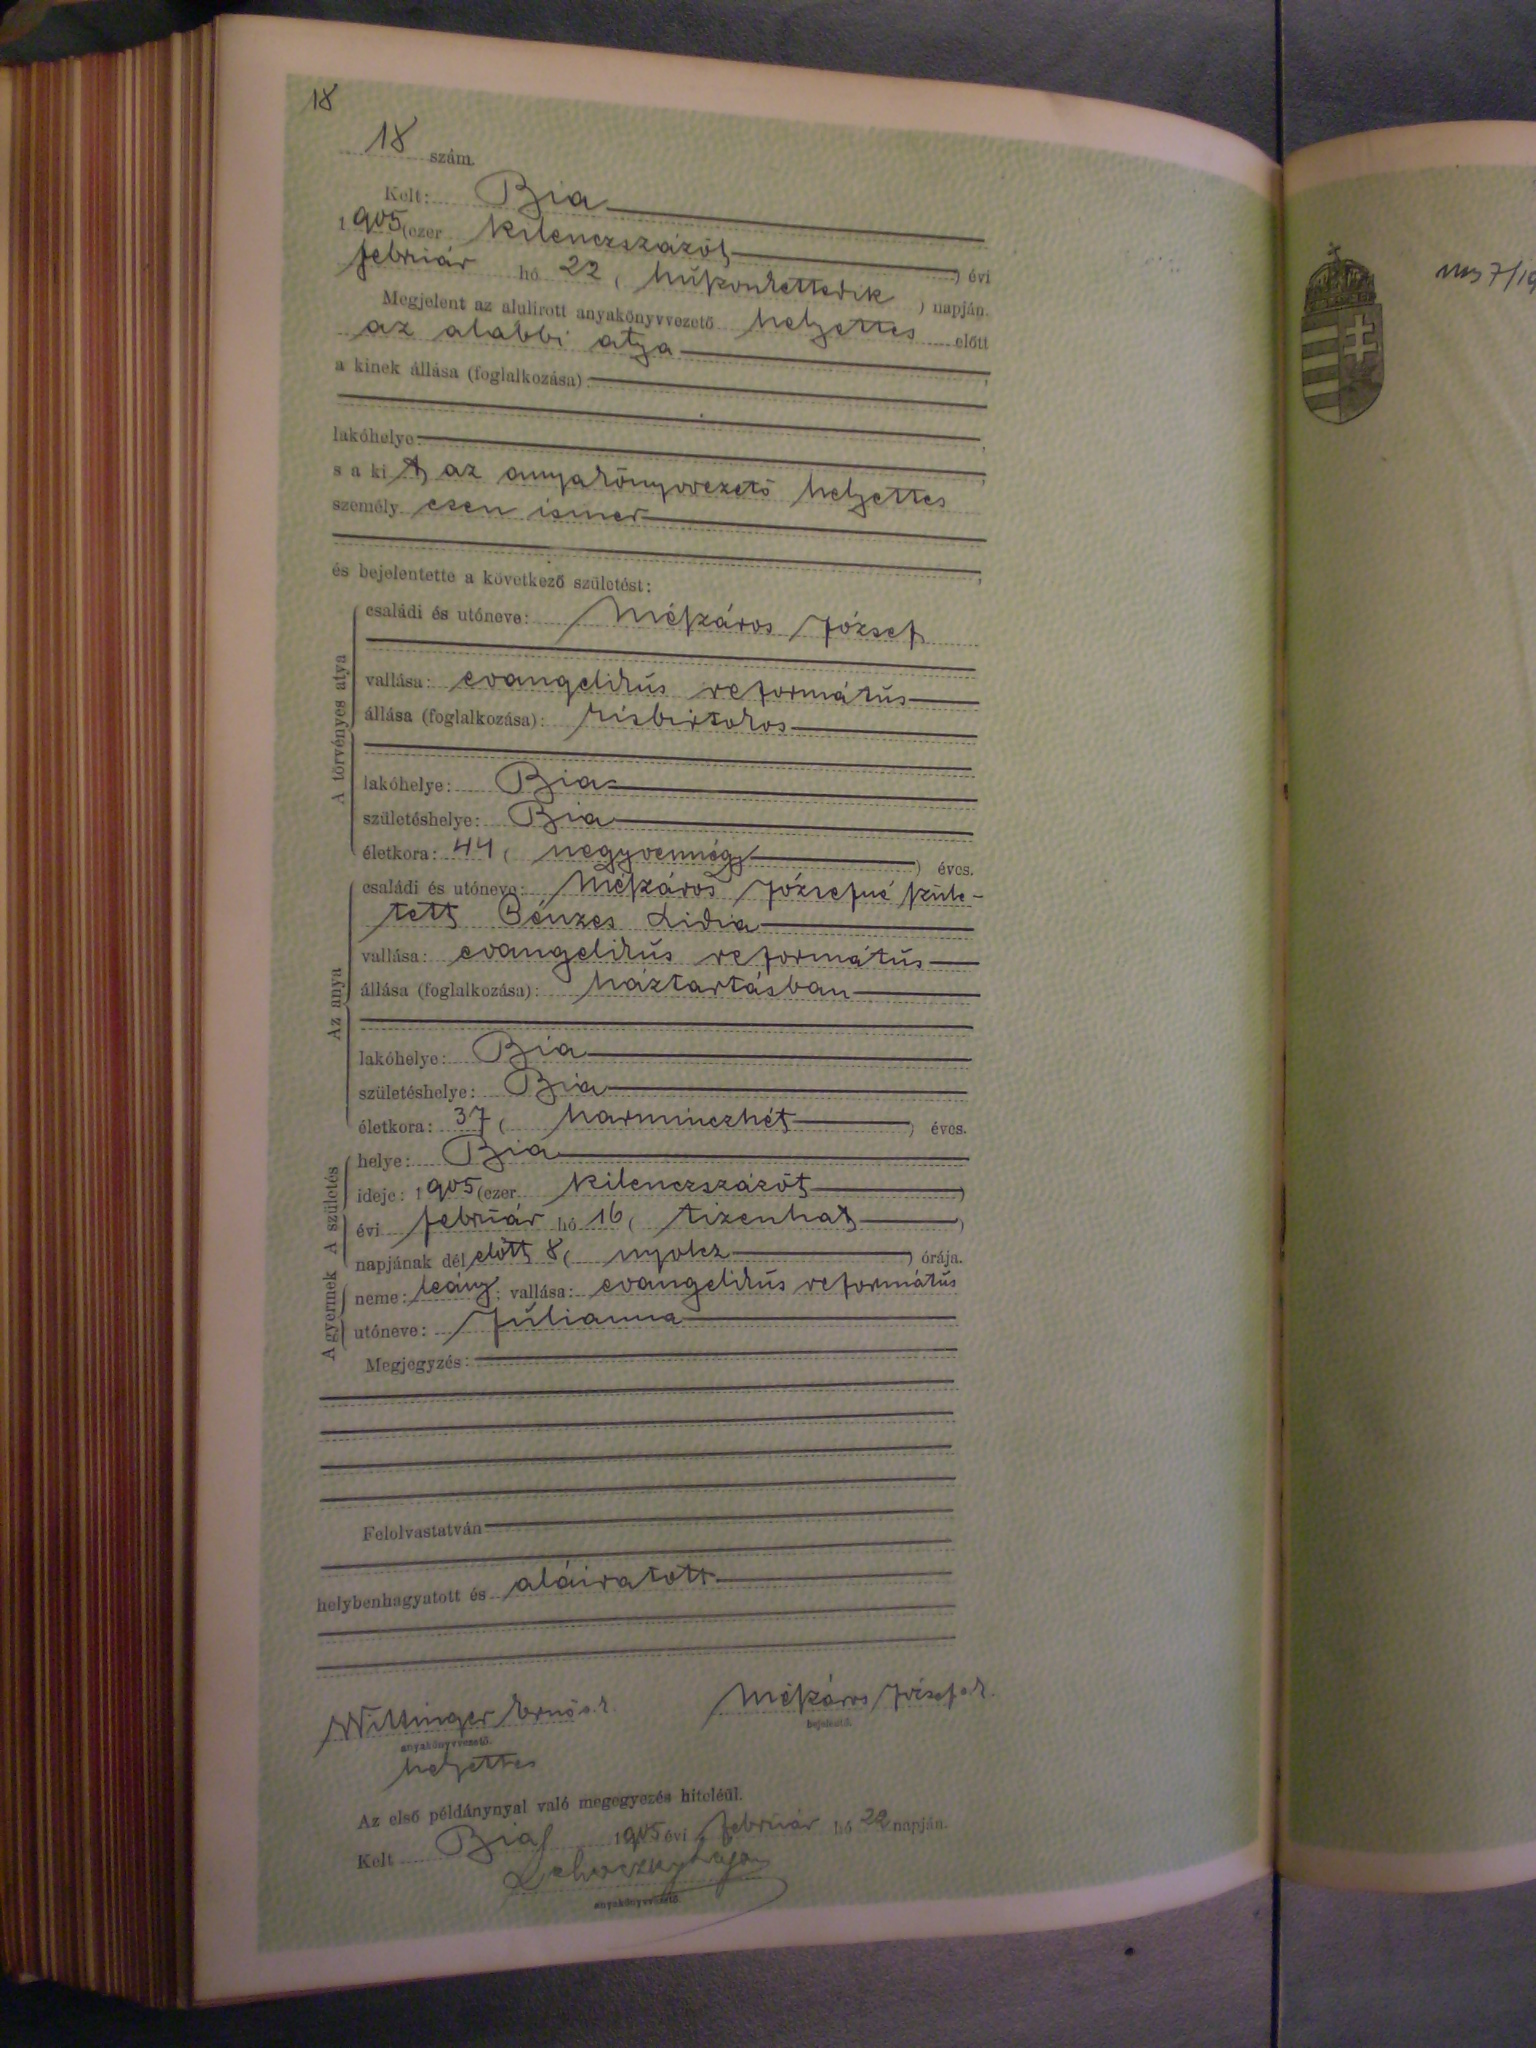 18
18 szám.
Kelt: Bia
1905 (ezer kilenczszázöt) évi
február hó 22 (huszonkettedik) napján.
Megjelent az alulirott anyakönyvvezető helyettes előtt
az alabbi atya,
a kinek állása (foglalkozása)
lakóhelye
s a kit az anyakönyvvezető helyettes
személyesen ismer
és bejelentette a következő születést:
A törvényes atya
családi és utóneve: Mészáros József
vallása: evangelikús református
állása (foglalkozása): kisbirtokos
lakóhelye: Bia
születéshelye: Bia
életkora: 44 (negyvennégy) éves.
Az anya
családi és utóneve: Mészáros Józsefné szüle-
tett Bénzes Lidia
vallása: evangelikús református
állása (foglalkozása): háztartásban
lakóhelye: Bia
születéshelye: Bia
életkora: 37 (harminczhét) éves.
A születés
helye: Bia
ideje: 1905 (ezer kilenczszázöt)
évi február hó 16 (tizenhat)
napjának dél előtt 8 (nyolcz) órája.
A gyermek
neme: leány; vallása: evangelikús református
utóneve: Júlianna
Megjegyzés:
Felolvastatván
helybenhagyatott és aláiratott
Wittinger Ernő s.k. Mészáros József s.k.
anyakönyvvezető. bejelentő.
helyettes
Az első példánynyal való megegyezés hiteléül.
Kelt Bia, 1905 évi február hó 22 napján.
anyakönyvvezető.